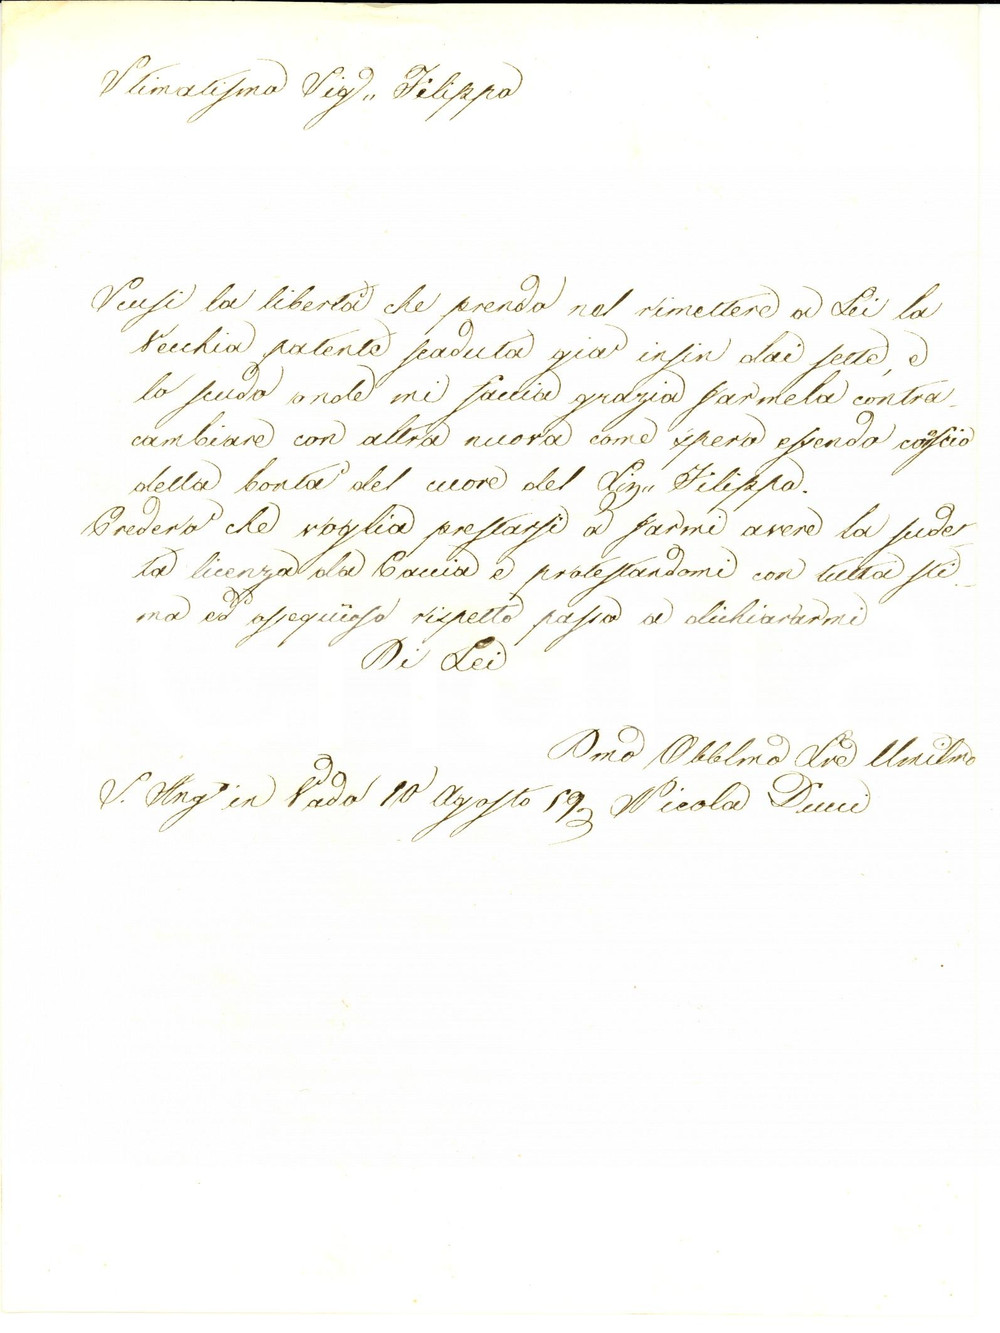 Stimatissmo Sig.r Filippo
Scusi la libertà che prendo nel rimettere a Lei la
Vecchia patente scaduta già insin dai sette, e
lo scudo onde mi faccia grazia farmela contra-
cambiare con altra nuova come spero essendo conscio
della bontà del cuore del Sig.r Filippo.
Crederò che voglia prestarsi a farmi avere la sudet-
ta licenza da Caccia e protestandomi con tutta sti-
ma ed ossequioso rispetto passo a dichiararmi
Di Lei
Dmo Obblmo Sre Umilmo
S. Ang° in Vado 10 Agosto 59 Nicola Ducci